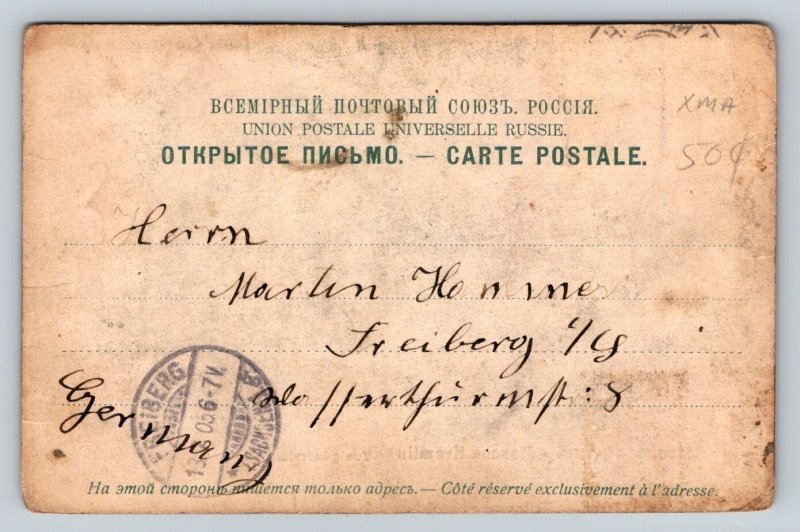 ВСЕМІРНЫЙ ПОЧТОВЫЙ СОЮЗЪ. РОССІЯ.
UNION POSTALE UNIVERSELLE RUSSIE.
ОТКРЫТОЕ ПИСЬМО. — CARTE POSTALE.
XMA
50¢
Herrn
Martin Hommer
Freiberg i/S
Wasserthurmstr: 8
Germany
FREIBERG
05 6-7V.
На этой сторонѣ пишется только адресъ. — Côté réservé exclusivement à l'adresse.